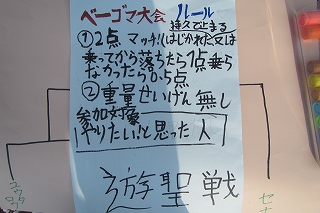 ベーゴマ大会 ルール
持久で止まる
①2点マッチ!(はじかれた又は
乗ってから落ちたら1点乗ら
なかったら0.5点
②重量せいげん無し
参加対象
やりたい!と思った人
遊聖戦